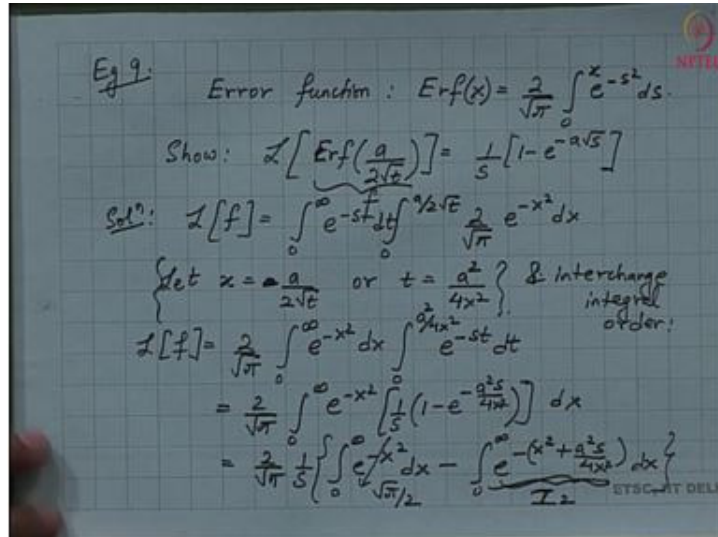 NPTEL
Eg 9: Error function : Erf(x) = 2/√π ∫₀ˣ e^{-s²} ds.
Show: ℒ[Erf(a/2√t)] = 1/s [1 - e^{-a√s}]
f
Solⁿ: ℒ[f] = ∫₀^∞ e^{-st} dt ∫₀^{a/2√t} 2/√π e^{-x²} dx
{Let x = a/2√t or t = a²/4x²} & interchange
integral
order:
ℒ[f] = 2/√π ∫₀^∞ e^{-x²} dx ∫₀^{a²/4x²} e^{-st} dt
= 2/√π ∫₀^∞ e^{-x²} [1/s (1 - e^{-a²s/4x²})] dx
= 2/√π 1/s {∫₀^∞ e^{-x²} dx - ∫₀^∞ e^{-(x² + a²s/4x²)} dx}
√π/2 I₂
ETSC, IIT DELHI